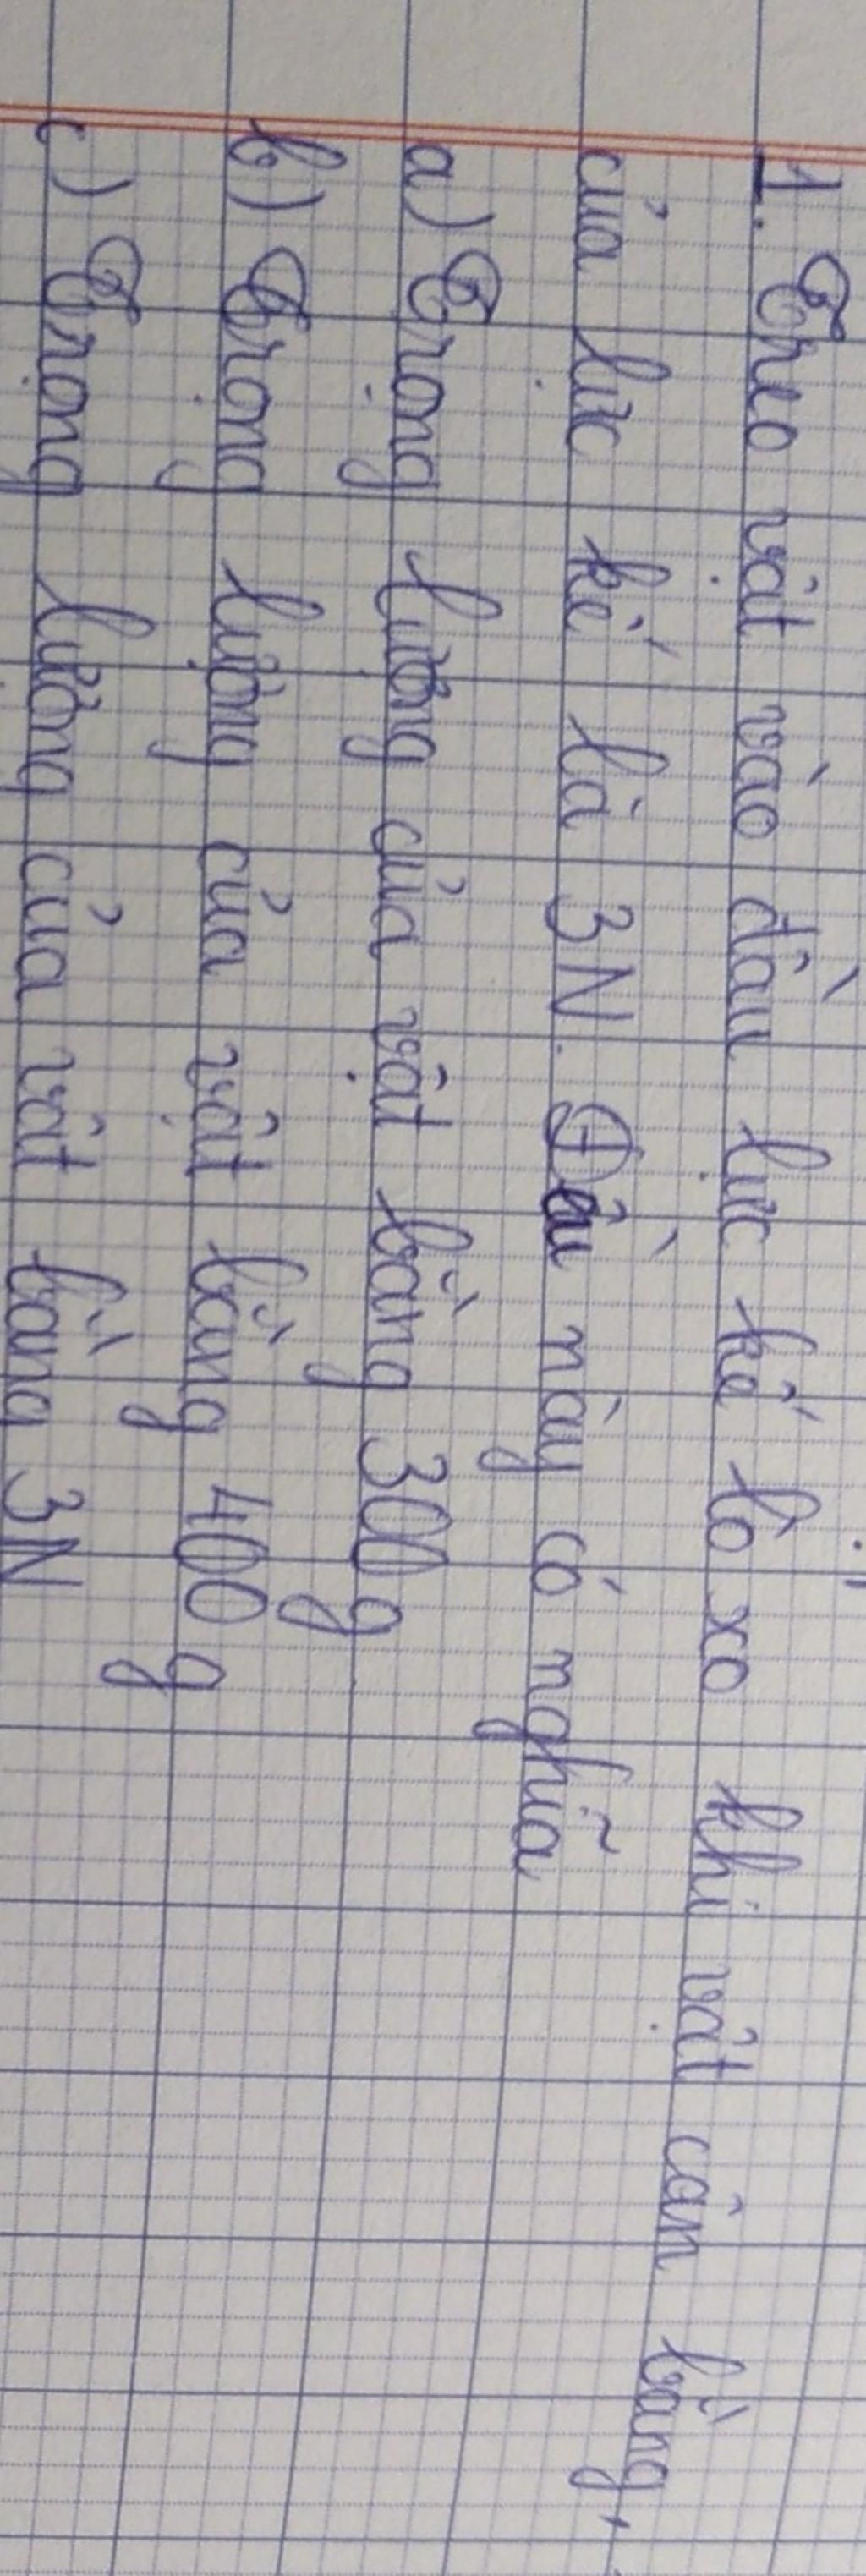 1. Treo vật vào đầu lực kế lò xo khi vật cân bằng,
của lực kế là 3N. Điều này có nghĩa
a) Trọng lượng của vật bằng 300g.
b) Trọng lượng của vật bằng 400g
c) Trọng lượng của vật bằng 3N